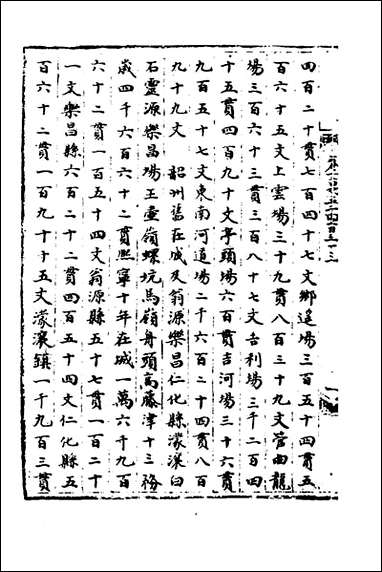 四百二十貫七百四十七文鄉遙場三百五十四貫五
百六十五文上雲場三十九貫八百三十九文管曲龍
場三百六十三貫三百八十七文古利場三千二百四
十五貫四百九十文亭頭場六百貫吉河場三十六貫
九百五十七文東南河道場二千六百二十四貫八百
九十九文 韶州舊在城及翁源樂昌仁化縣濛瀼白
石靈源樂昌場王壷嶺螺坑馬嶺身頭高藤津十三務
歲四千六百六十二貫熙寧十年在城一萬六千九百
六十二貫一百五十四文翁源縣五十七貫一百二十
一文樂昌縣六百二十二貫四百五十四文仁化縣五
百六十二貫一百九十五文濛瀼鎮一千九百三貫